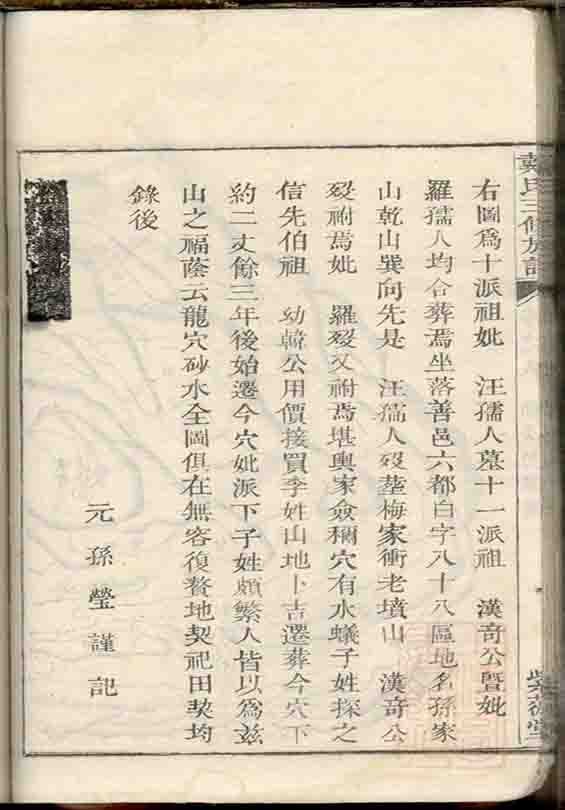 戴氏三修族譜
紫荷堂
右圖爲十派祖妣 汪孺人墓十一派祖 漢奇公暨妣
羅孺人均合葬焉坐落善邑六都白字八十八區地名孫家
山乾山巽向先是 汪孺人歿塟梅家衝老墳山 漢奇公
歿祔焉妣 羅歿又祔焉堪輿家僉稱穴有水蟻子姓探之
信先伯祖 幼韓公用價接買李姓山地卜吉遷葬今穴下
約二丈餘三年後始遷今穴妣派下子姓頗繁人皆以爲兹
山之福蔭云龍穴砂水全圖俱在無容復贅地契祀田契均
錄後
元孫瑩謹記